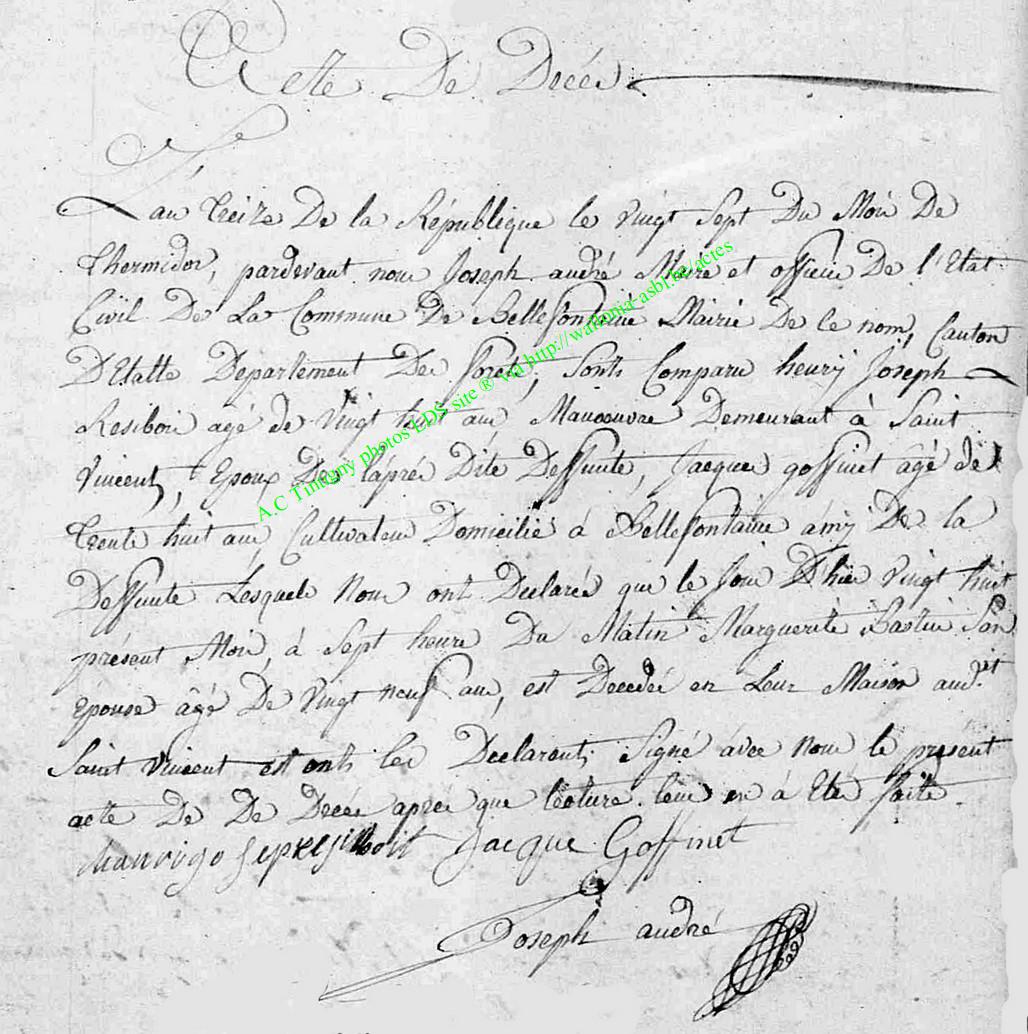 Acte De Décés
L'an treize De la République le vingt Sept Du Mois De
thermidor, pardevant nous Joseph andré Maire et officier De l'Etat
Civil De La Commune De Bellefontaine Mairie De ce nom, Canton
D'Etalle Departement Des forêts, Sonts Comparu henry Joseph
Resibois agé de vingt huit ans Manoeuvre Demeurant à Saint
Vincent, Epoux De l'aprés Dite Deffunte, Jacques goffinet âgé de
trente huit ans, Cultivateur Domicilié à Bellefontaine amy De la
Deffunte Lesquels Nous ont Declarés que le Jour D'hier vingt huit
présent Mois, à Sept heure Du Matin Marguerite Bastin Son
Epouse âgé De vingt neuf ans, est Decedée en Leur Maison audit
Saint Vincent est onts les Declarants Signé avec nous le present
acte De De Décés aprés que lecture leur en à Eté faite.
Jacque Goffinet
Joseph andré
A.C Tintigny photos EDS site ® via http://wallonia-asbl.be/actes